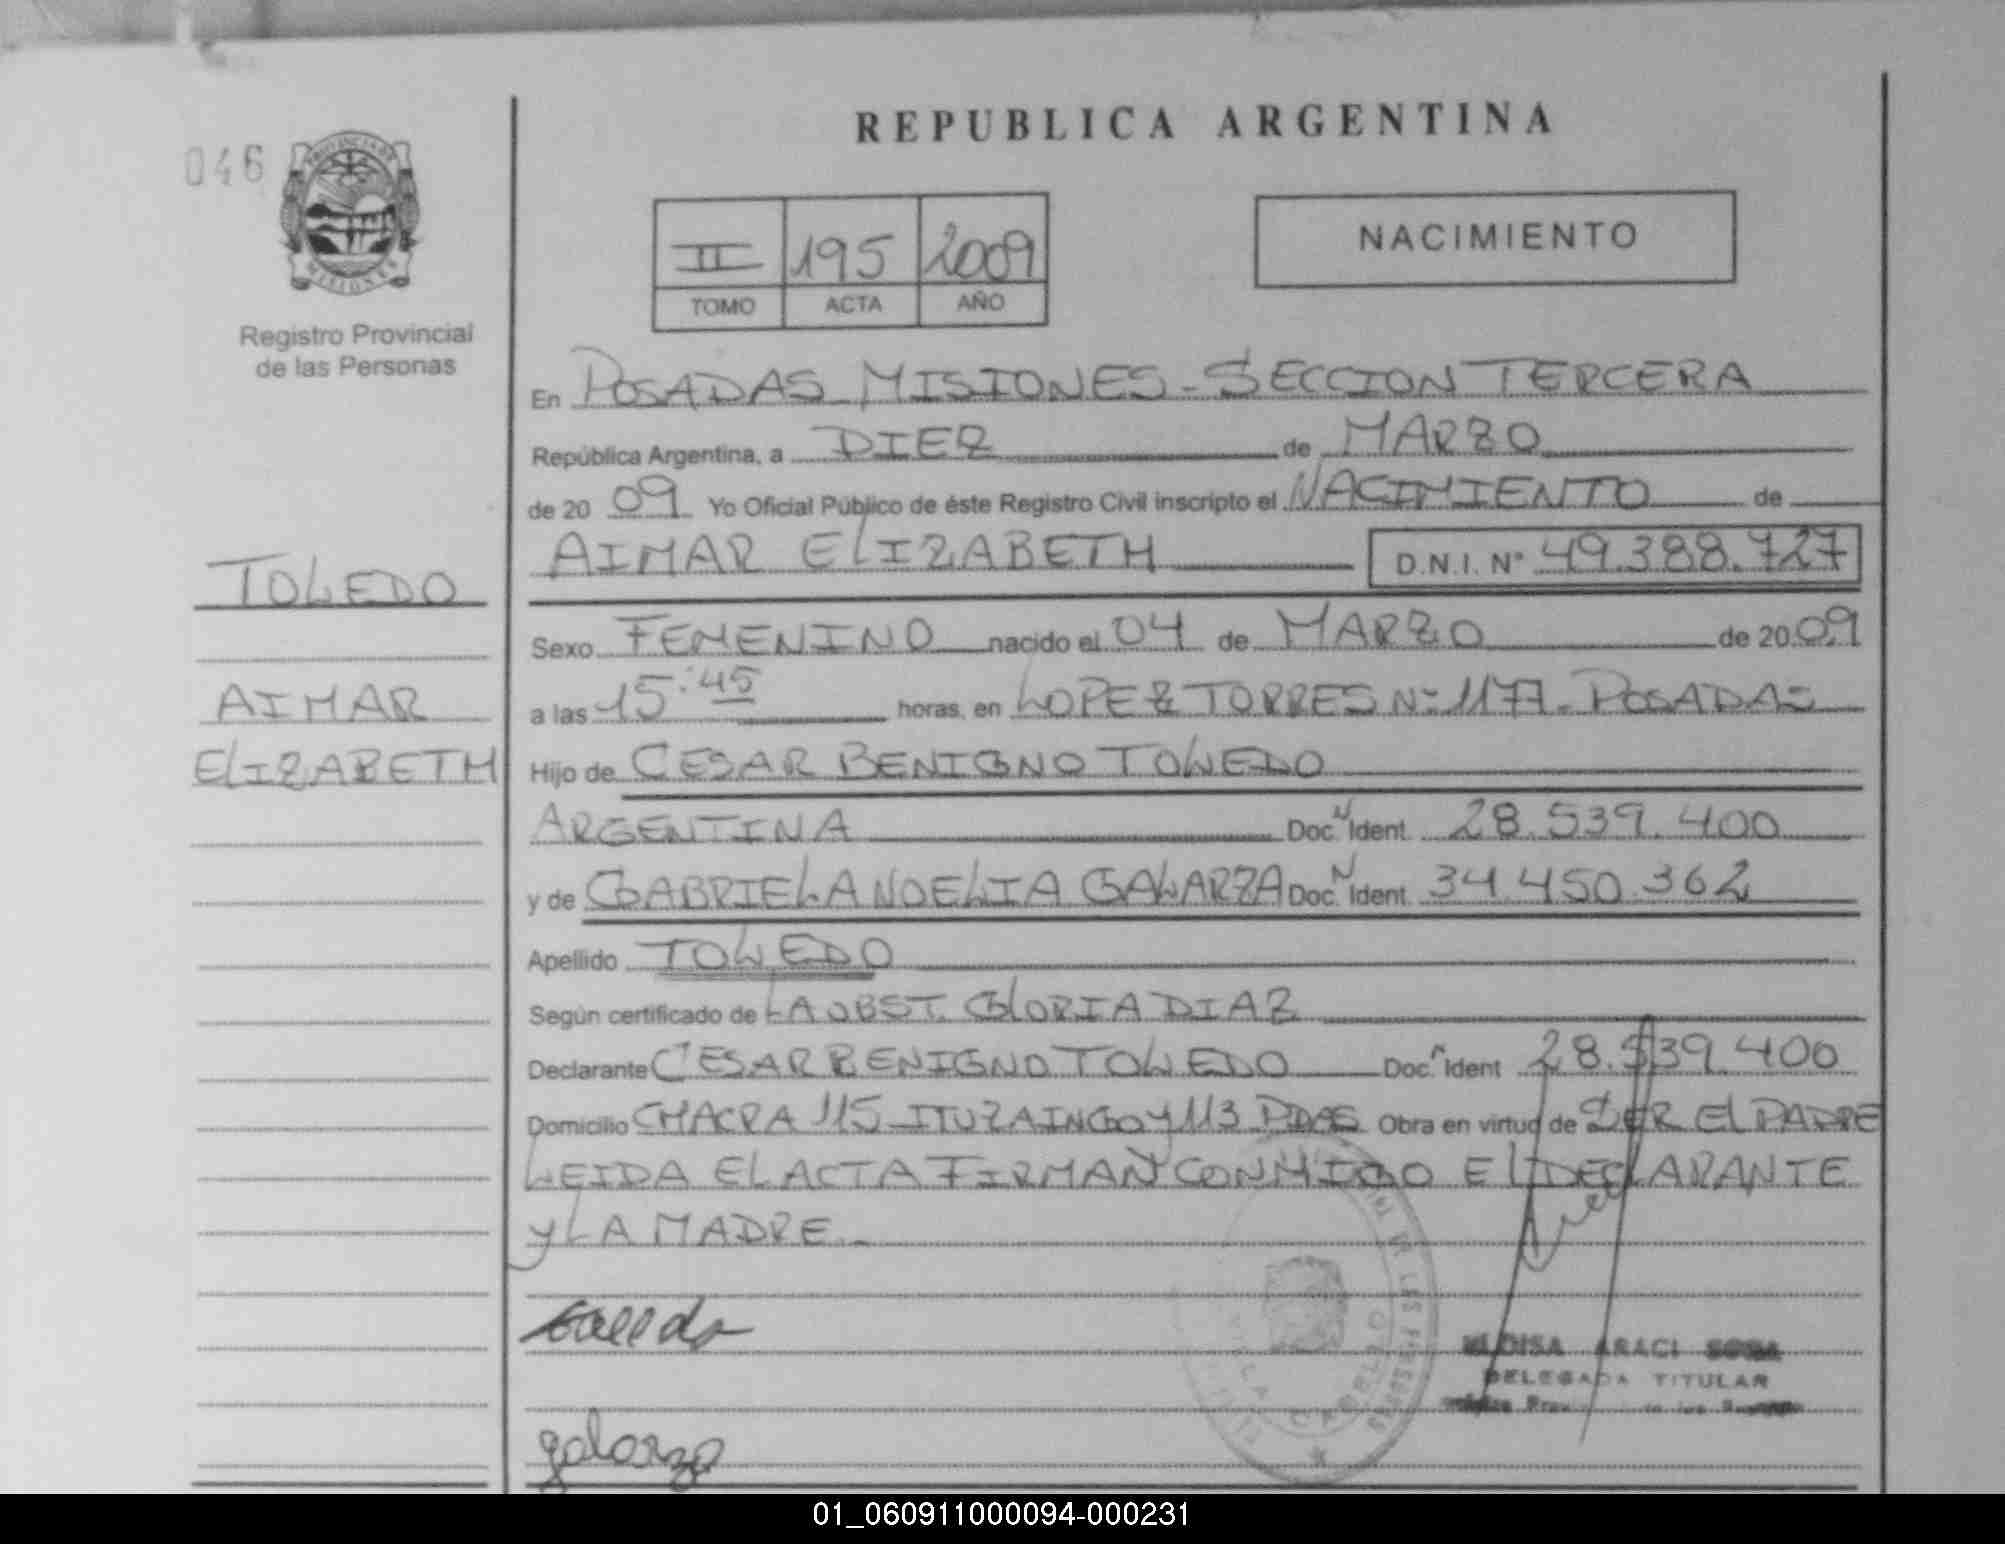 REPUBLICA ARGENTINA
046
PROVINCIA DE
MISIONES
Registro Provincial
de las Personas
II 195 2009
TOMO ACTA AÑO
NACIMIENTO
En POSADAS MISIONES - SECCION TERCERA
República Argentina, a DIEZ de MARZO
de 20 09 Yo Oficial Público de éste Registro Civil inscripto el NACIMIENTO de
AIMAR ELIZABETH D.N.I. Nº 49.388.727
TOLEDO
AIMAR
ELIZABETH
Sexo FEMENINO nacido el 04 de MARZO de 20 09
a las 15:45 horas, en LOPEZ TORRES Nº 1177 - POSADAS
Hijo de CESAR BENIGNO TOLEDO
ARGENTINA Doc. N Ident. 28.539.400
y de GABRIELA NOELIA GALARZA Doc. N Ident. 34.450.362
Apellido TOLEDO
Según certificado de LA OBST. GLORIA DIAZ
Declarante CESAR BENIGNO TOLEDO Doc. N Ident 28.539.400
Domicilio CHACRA 115 - ITUZAINGO Y 113 PDAS Obra en virtud de SER EL PADRE
LEIDA EL ACTA FIRMAN CONMIGO EL DECLARANTE
Y LA MADRE.-
galarza
VILLA CABELLO
ARACI
DELEGADA TITULAR
01_060911000094-000231